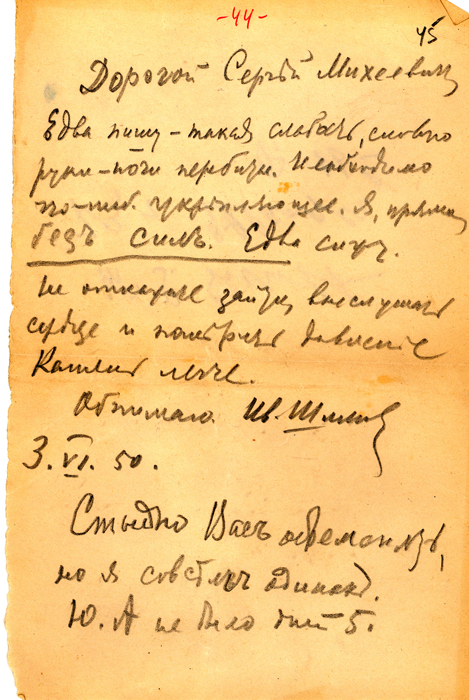 -44-
45
Дорогой Сергѣй Михеевич
Едва пишу – такая слабость, словно
руки–ноги перебиты. Необходимо
что-ниб. укрѣпляющее. Я, прямо,
безъ силъ. Едва сижу.
Не откажите зайти, выслушать
сердце и посмотрѣть давленіе
Кашель легче.
Обнимаю. Ив. Шмелев
3. VI. 50.
Стыдно Васъ обременять,
но я совсѣмъ одинок.
Ю. А не было дней 5.